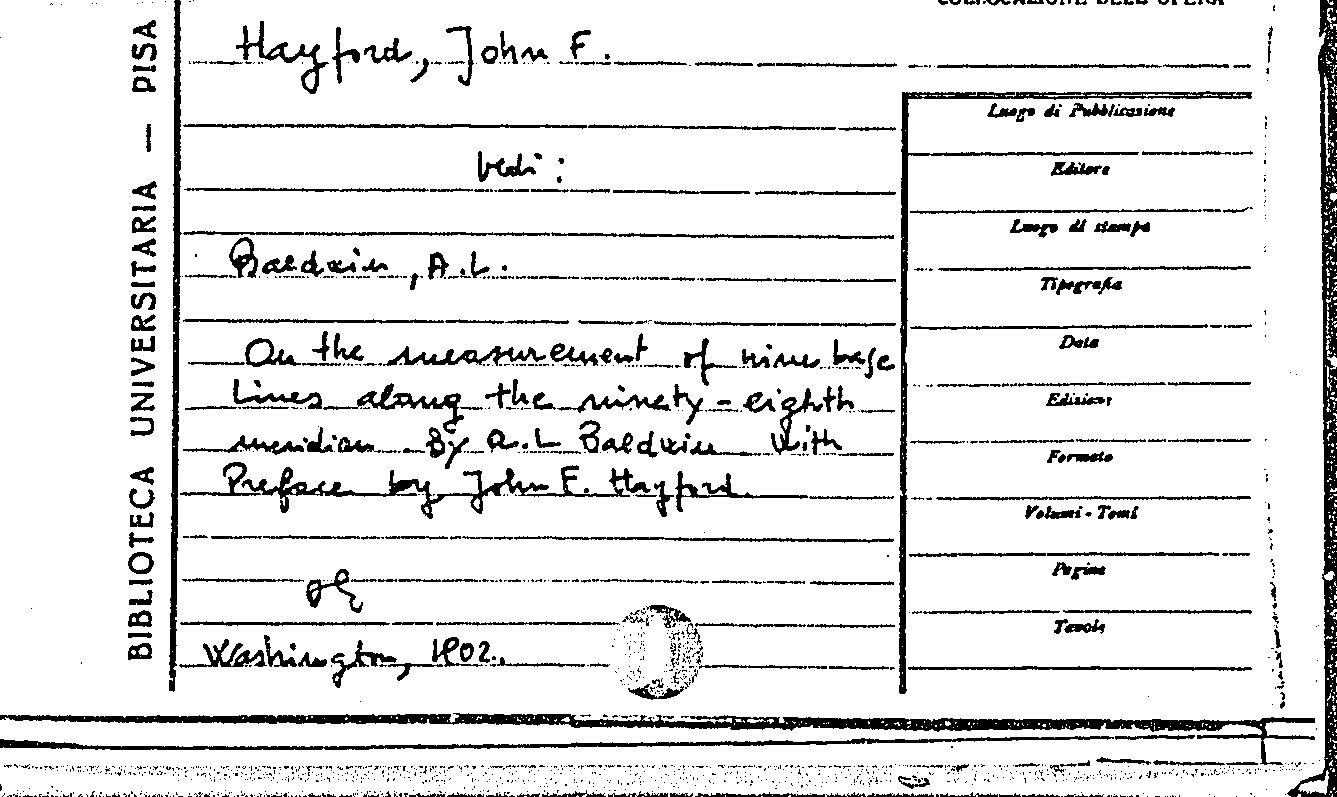 COLLOCAZIONE DELL'OPERA
BIBLIOTECA UNIVERSITARIA — PISA
Hayford, John F.
vedi:
Baldwin, A.L.
On the measurement of nine base
Lines along the ninety-eighth
meridian. By A.L Baldwin With
Preface by John F. Hayford.
Washington, 1902.
Luogo di Pubblicazione
Editore
Luogo di stampa
Tipografia
Data
Edizione
Formato
Volumi - Tomi
Pagine
Tavole